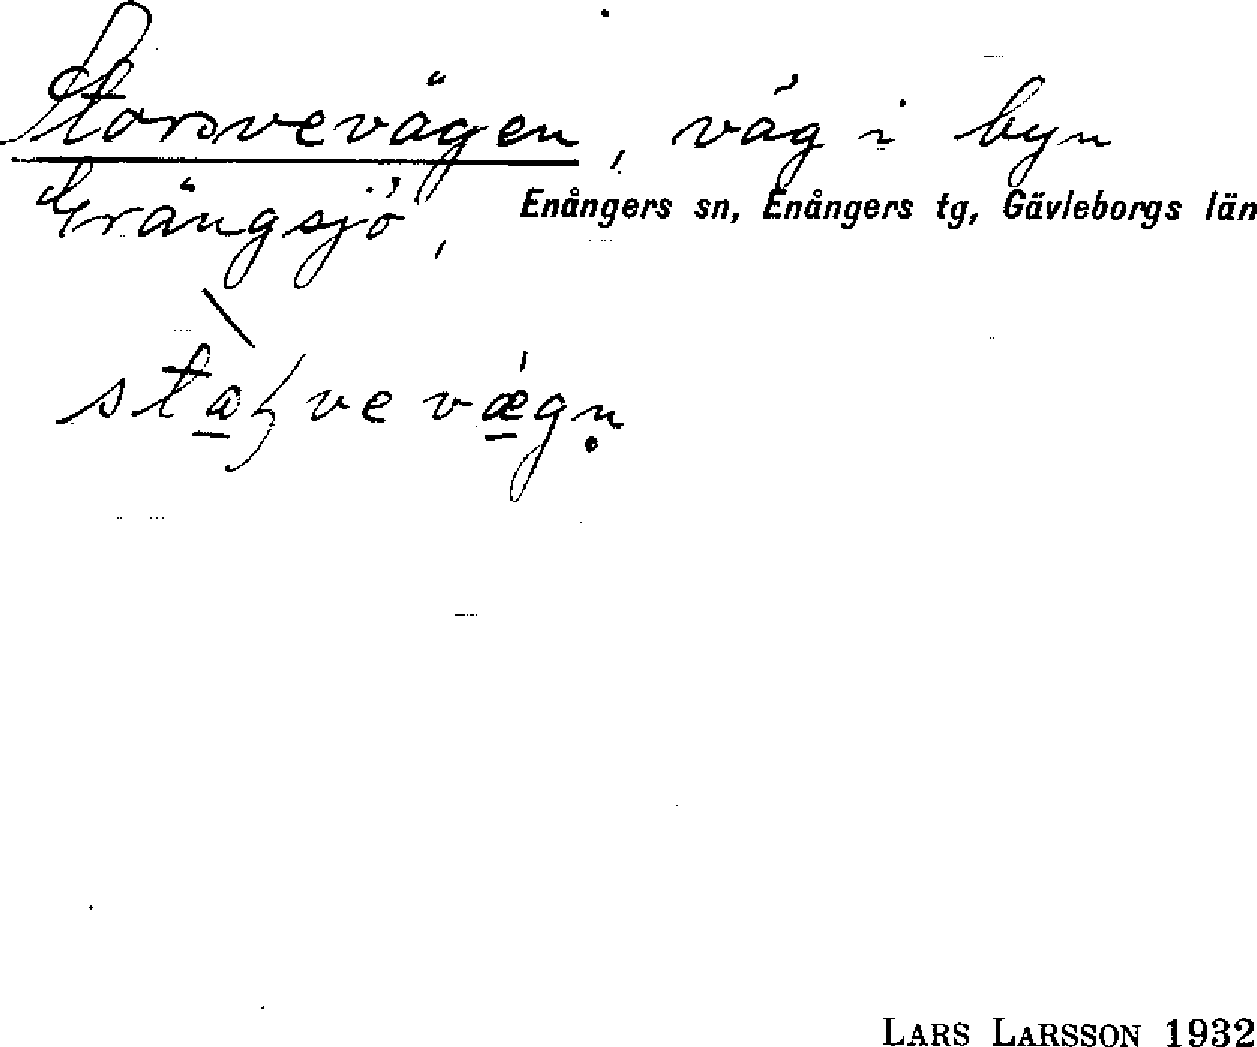 Storsvevägen, väg i byn
Grängsjö, Enångers sn, Enångers tg, Gävleborgs län
LARS LARSSON 1932